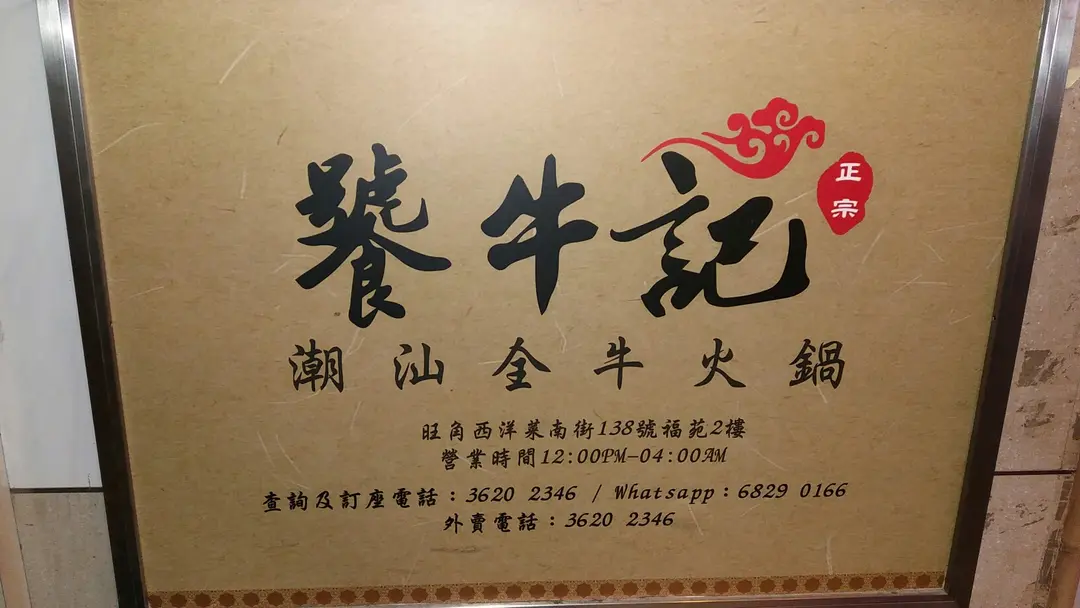 饕牛記
正宗
潮汕全牛火鍋
旺角西洋菜南街138號福苑2樓
營業時間12:00PM-04:00AM
查詢及訂座電話：3620 2346 / Whatsapp：6829 0166
外賣電話：3620 2346